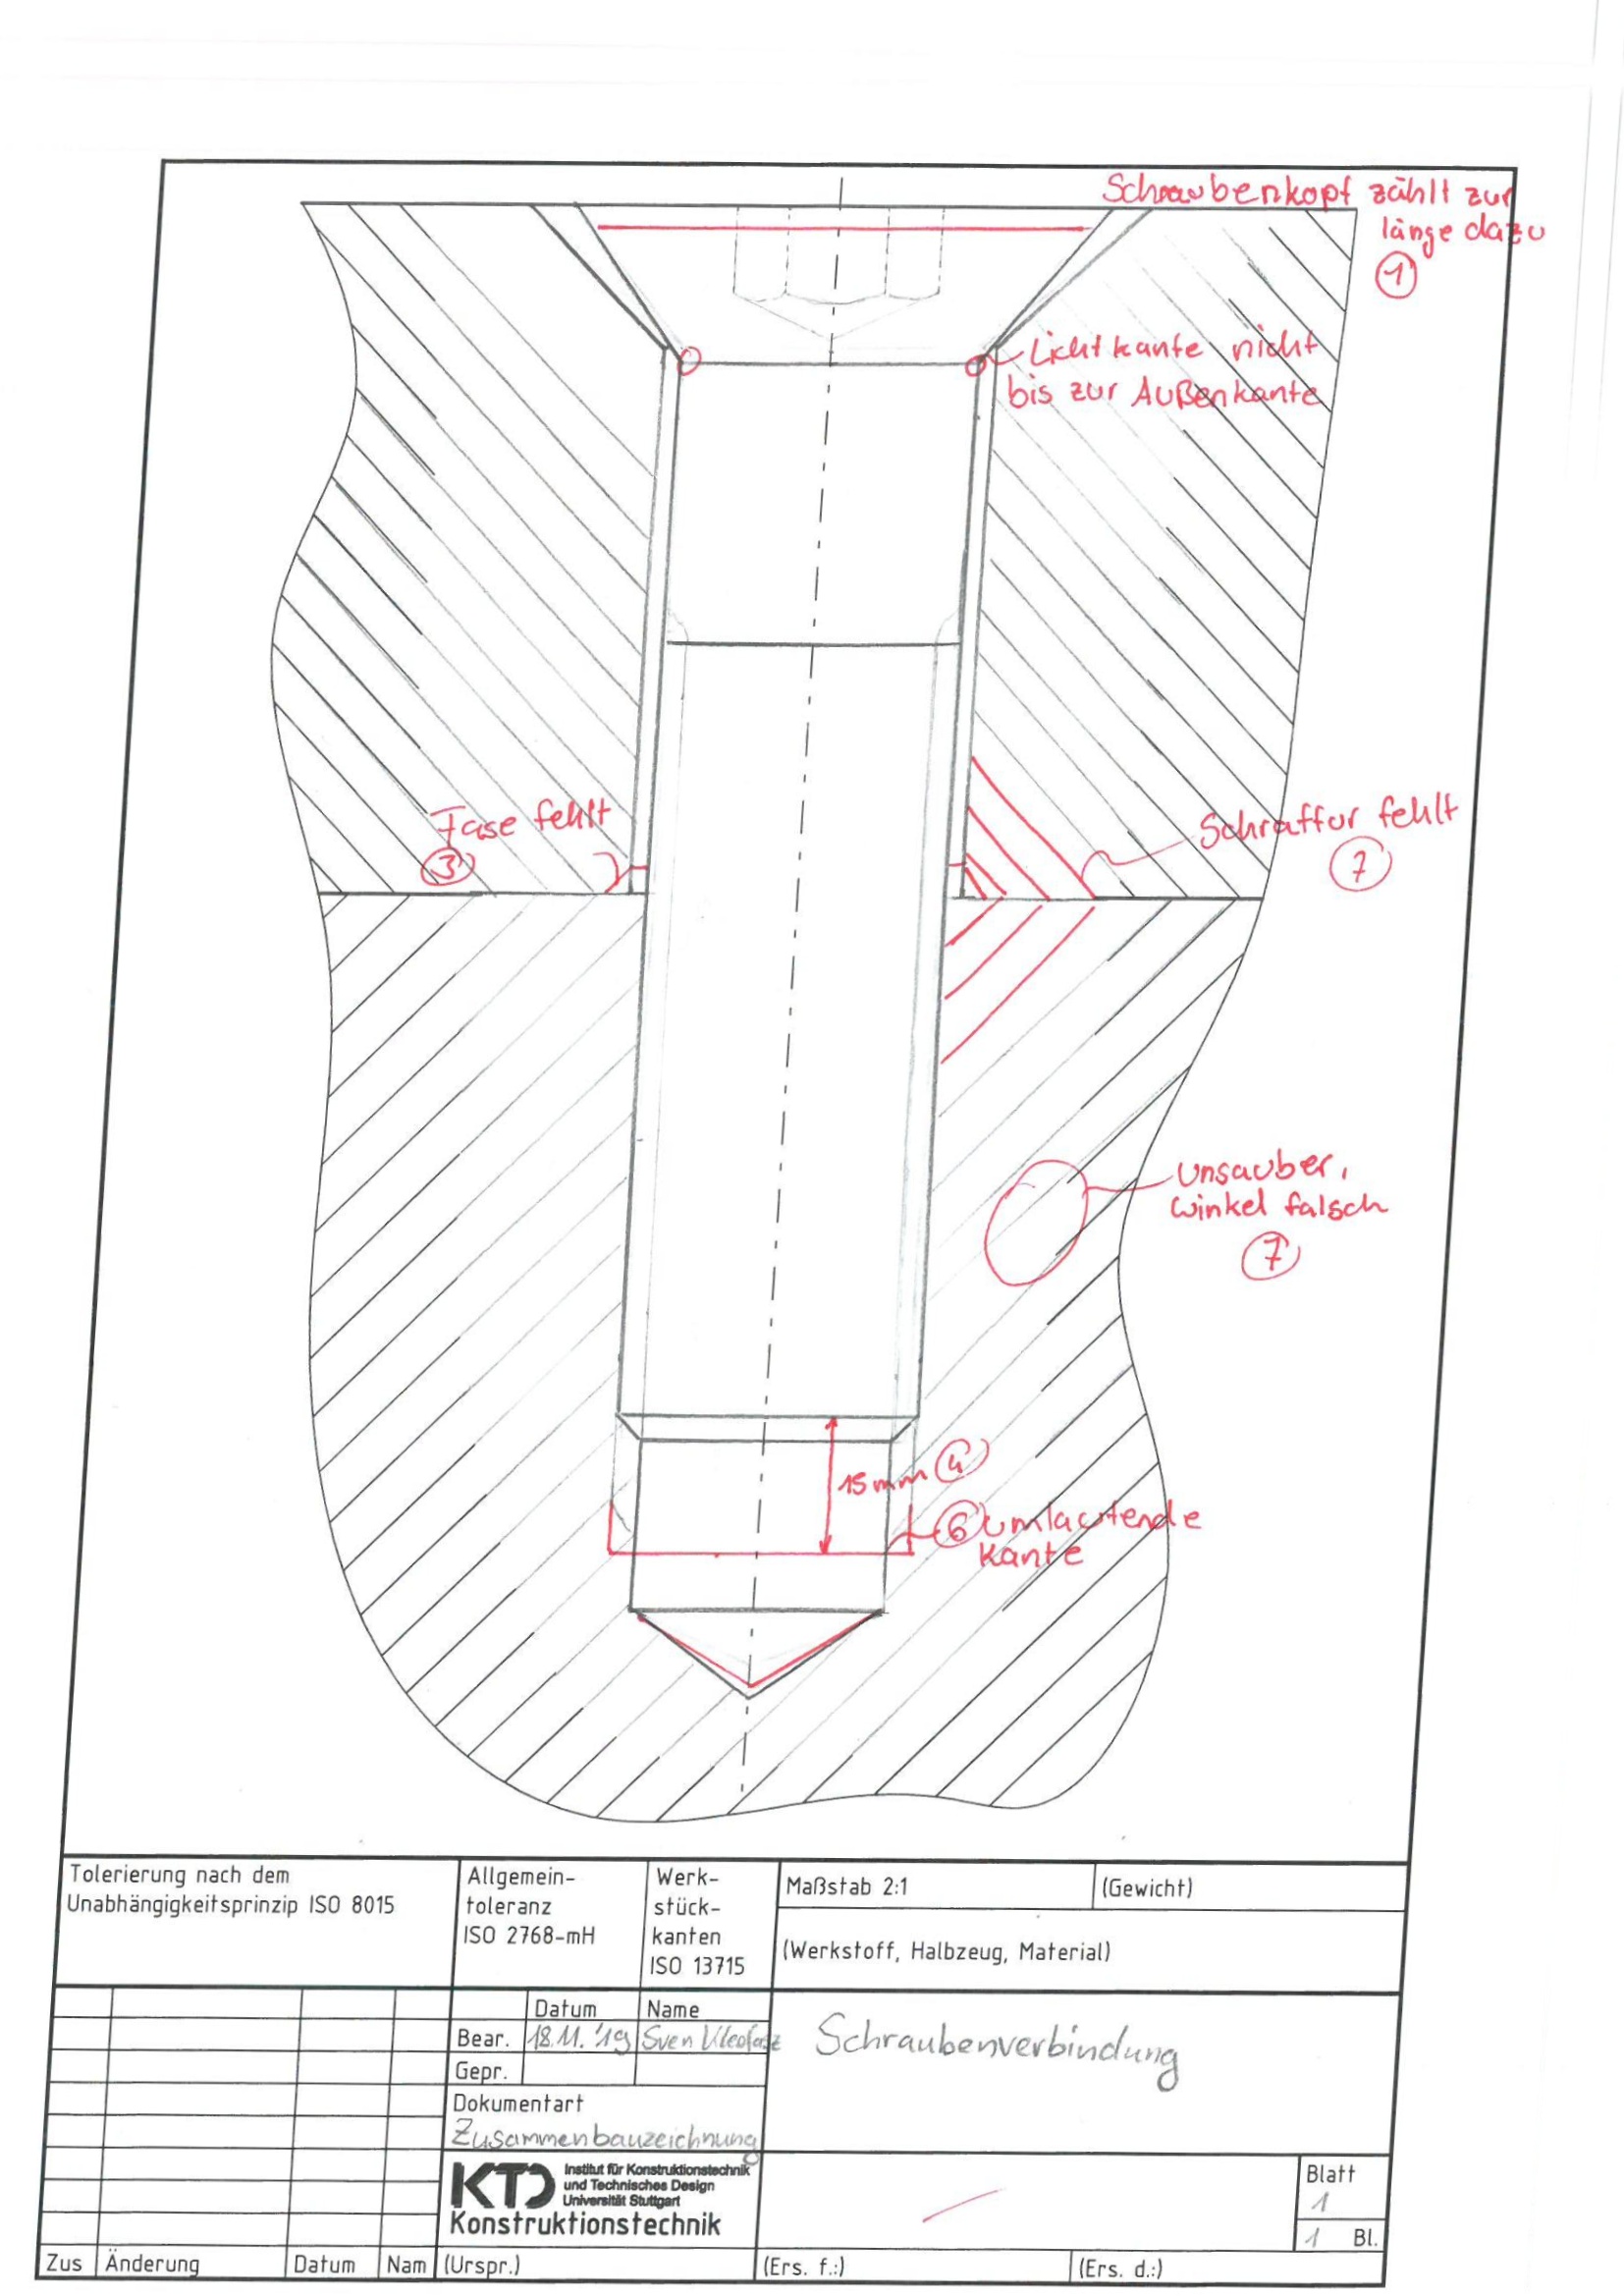 Schraubenkopf zählt zur
länge dazu
1
Lichtkante nicht
bis zur Außenkante
Fase fehlt
3
Schraffur fehlt
7
unsauber,
winkel falsch
7
15mm 4
6 umlaufende
Kante
Tolerierung nach dem
Unabhängigkeitsprinzip ISO 8015
Allgemein-
toleranz
ISO 2768-mH
Werk-
stück-
kanten
ISO 13715
Maßstab 2:1
(Gewicht)
(Werkstoff, Halbzeug, Material)
Datum Name
Bear. 18.11.'19 Sven
Gepr.
Schraubenverbindung
Dokumentart
Zusammenbauzeichnung
KTD Institut für Konstruktionstechnik
und Technisches Design
Universität Stuttgart
Konstruktionstechnik
Blatt
1
1 Bl.
Zus Änderung Datum Nam (Urspr.) (Ers. f.:) (Ers. d.:)